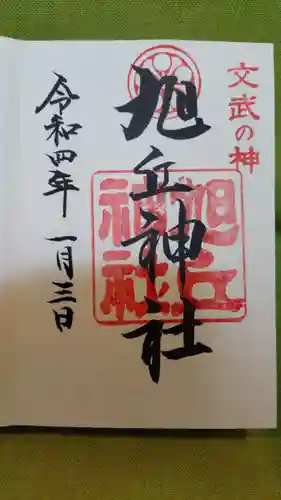 文武の神
旭丘神社
旭丘神社
令和四年 一月三日